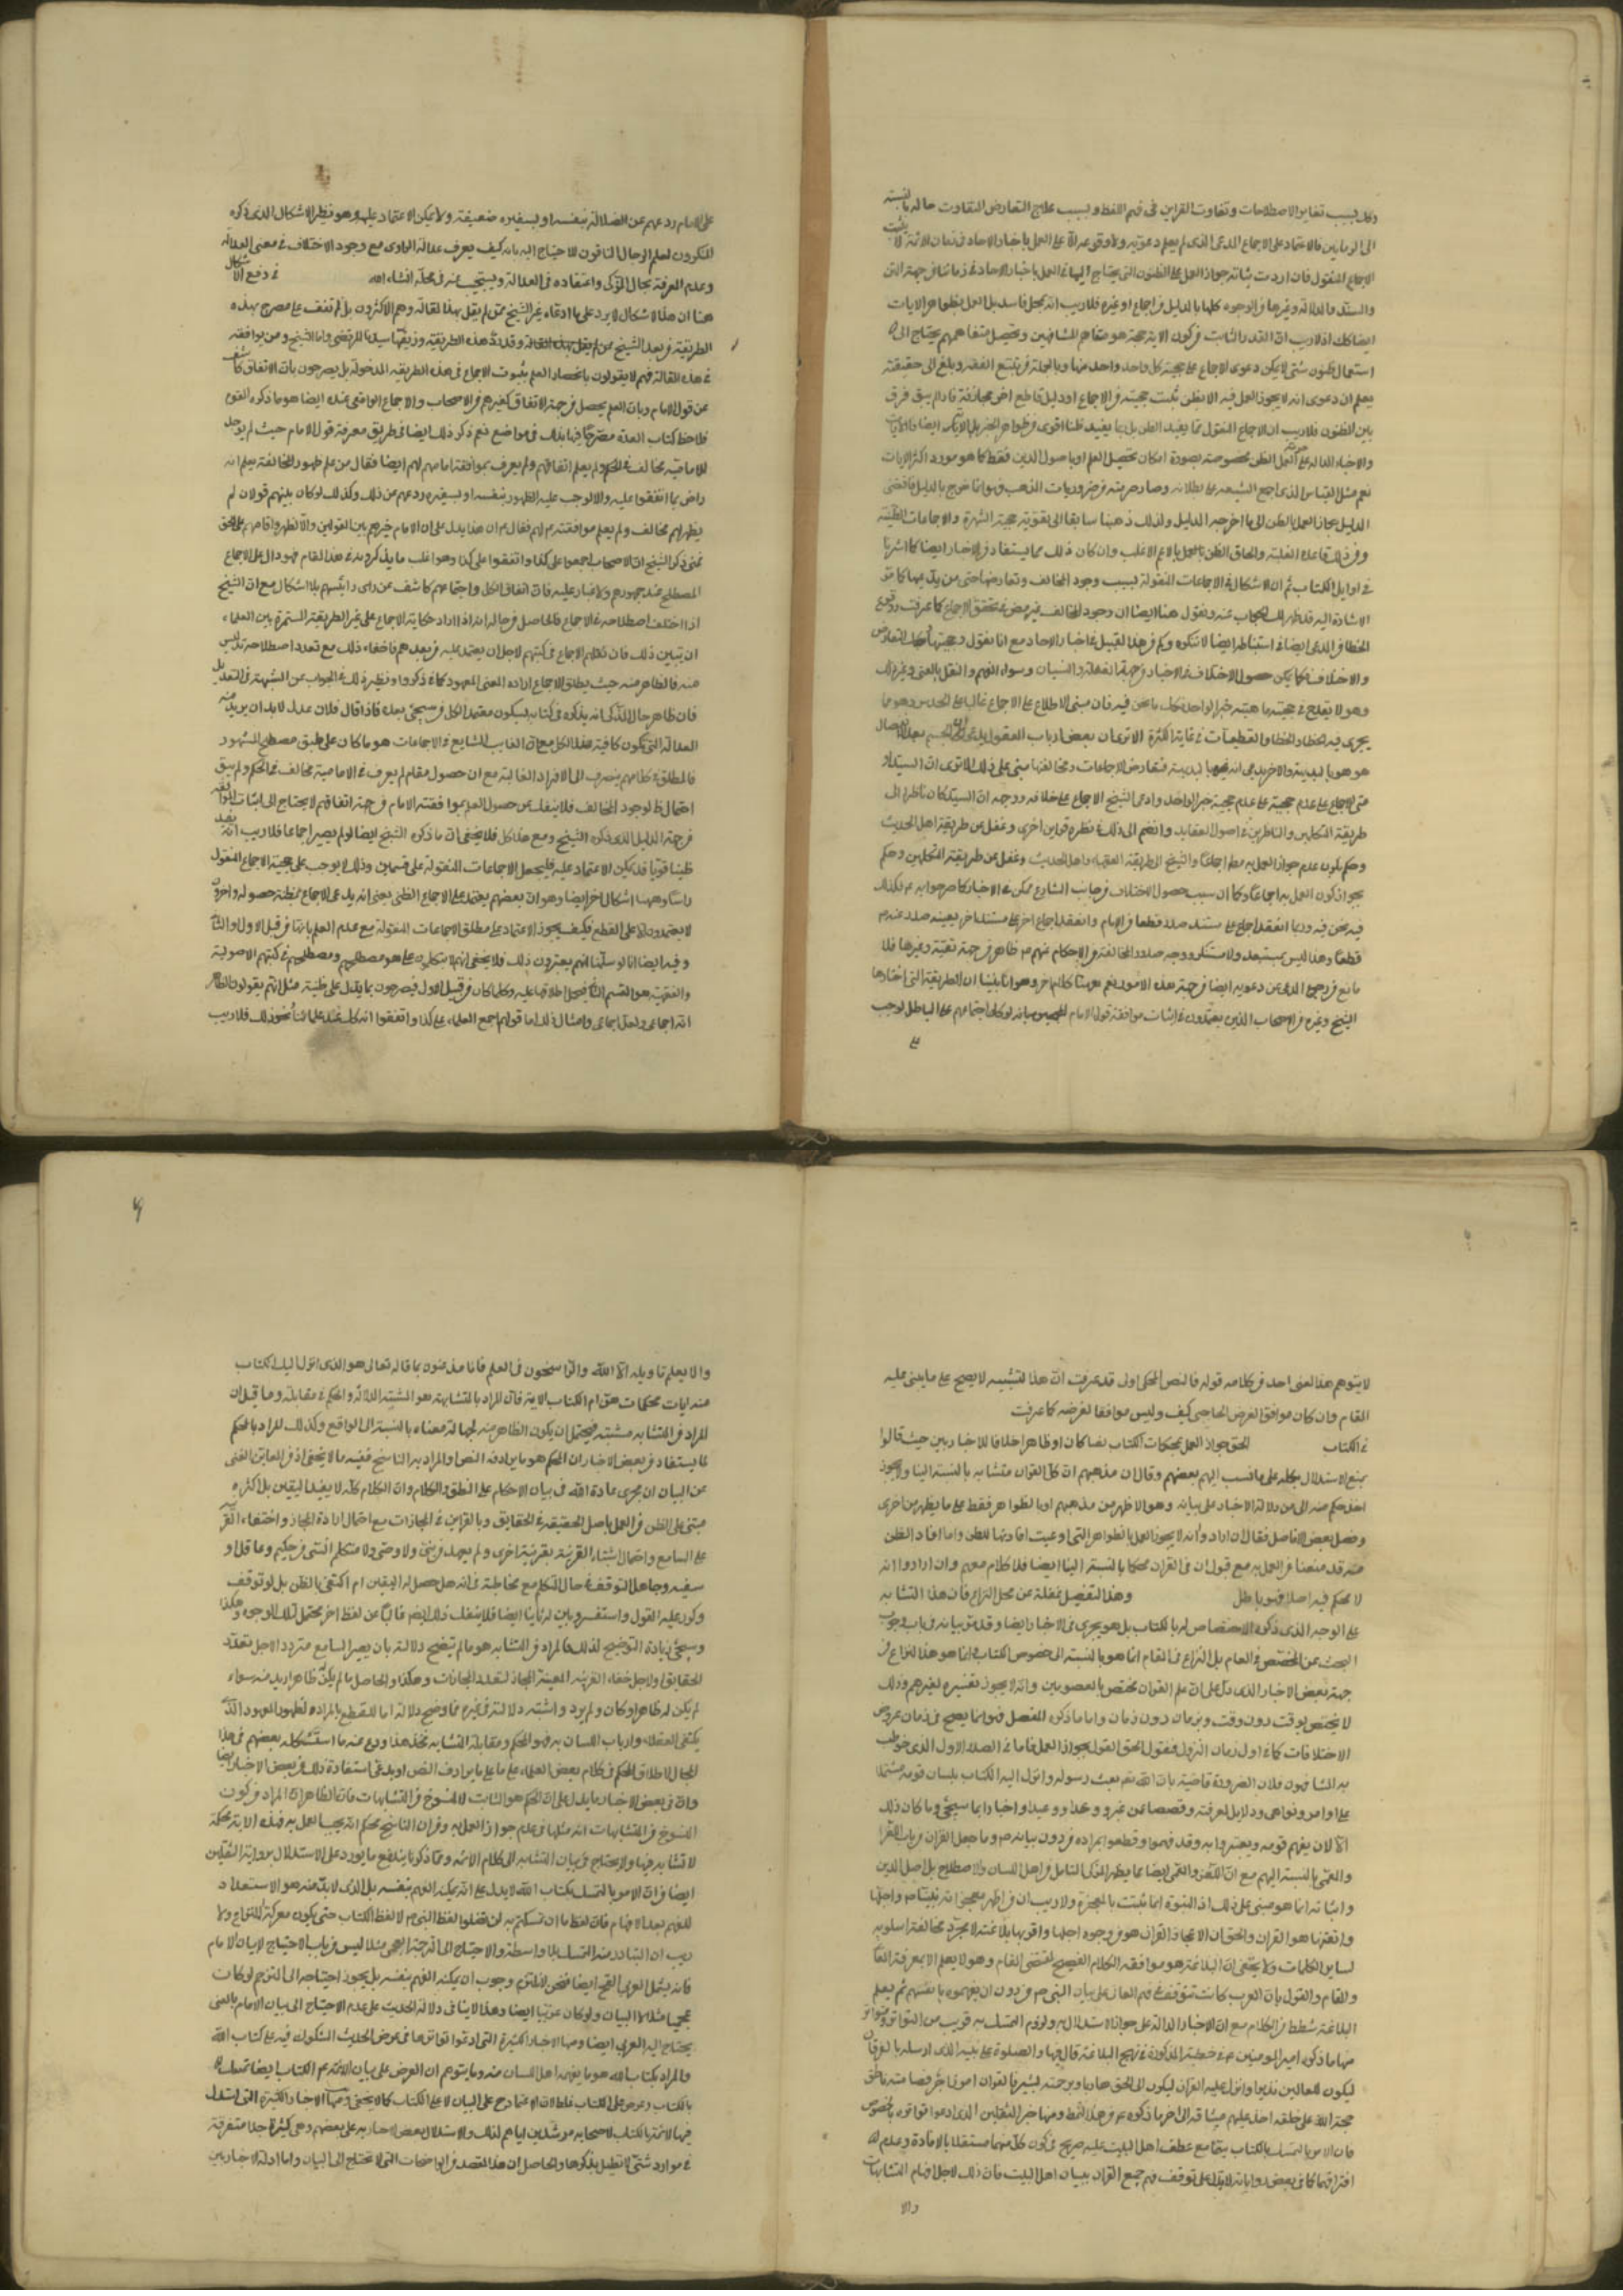 وكل بسبب تغاير الاصطلاحات وتفاوت القراين فى فهم اللفظ وبسبب علاج التعارض التفاوت حاله بالنسبة
الاجماع المنقول فان اردت بيانه جواز العمل على الظنون التى يحتاج اليها فى العمل باخبار الاحاد فى زماننا من جهة المتن
والسند والدلالة وغيرها من الوجوه كلها بالدليل من اجماع او غيره فلا ريب انه مجمل فاسد بل العمل بظواهر الايات
ايضا كك اذ لا ريب ان القدر الثابت من كون الاية حجة هو متفاهم المشافهين وتحصيل متفاهمهم يحتاج الى
استعمال ظنون شتى لا يمكن دعوى الاجماع على حجية كل واحد واحد منها وبالجملة من تتبع الفقه وبلغ الى حقيقته
يعلم ان دعوى انه لا يجوز العمل فيه الا بظن ثبت حجيته من الاجماع او دليل قاطع اخر مجازفة
بين الظنون فلا ريب ان الاجماع المنقول مما يفيد الظن بل ربما يفيد ظنا اقوى من ظواهر الخبر بل الايات ايضا
والاخبار الدالة على حرمة العمل بالظن مخصوصة بصورة امكان تحصيل العلم او باصول الدين فقط كما هو مورد اكثر الايات
نعم مثل القياس الذى اجمع الشيعة على بطلانه وصار حرمته من ضروريات المذهب فهو انما خرج بالدليل
الدليل بجواز العمل بالظن الى ما اخرجه الدليل ولذلك ذهبنا سابقا الى تقوية حجية الشهرة والاجماعات الظنية
فى اوايل الكتاب ثم ان الاشكال فى الاجماعات المنقولة بسبب وجود المخالف وتعارضها حتى من يدعيها كما مر
الاشارة اليه فقد ظهر لك الجواب عنه ونقول هنا ايضا ان وجود المخالف غير مضر فى تحقق الاجماع كما عرفت ووقوع
الخطا من المدعى ايضا فى استنباطه ايضا لا ننكره وكم من هذا القبيل فى اخبار الاحاد مع انا نقول بحجيتها
والاختلاف فكما يمكن حصول الاختلاف فى الاخبار من جهة الغفلة والنسيان وسوء الفهم والنقل بالمعنى وغير ذلك
وهو لا يقدح فى حجية ماهية خبر الواحد فكك ما نحن فيه فان مبنى الاطلاع على الاجماع غالبا على الحدس وهو مما
يجرى فيه الخطا والخطا فى القطعيات فى غاية الكثرة الا ترى ان بعض ارباب المعقول
متى الاجماع على عدم حجية خبر الواحد وادعى الشيخ الاجماع على خلافه ووجه ان السيد كان ناظرا الى
طريقة المتكلمين والناظرين فى اصول العقايد وانضم الى ذلك فى نظره قراين اخرى وغفل عن طريقة اهل الحديث
وحكم بكون عدم جواز العمل به مطلقا اجماعيا والشيخ الى طريقة الفقهاء واهل الحديث وغفل عن طريقة المتكلمين وحكم
بجواز كون العمل به اجماعيا وكما ان سبب حصول الاختلاف من جانب الشارع ممكن فى الاخبار كما صرحوا به فكذلك
فيه نحن فيه وربما انعقد اجماع على مستند صدر قطعا من الامام وانعقد اجماع اخر على مستند اخر بعينه صدر عنه
قطعا وهذا ليس بمستبعد ولا مستنكر ووجه صدور المخالفة فى الاحكام عنهم ظاهر من جهة تقية وغيرها فلا
الشيخ وغيره من الاصحاب الذين يعتمدون فى اثبات موافقة قول الامام للمجمعين بانه لو كان اجتماعهم على الباطل لوجب
على
على الامام ردعهم عن الضلالة بنفسه او بسفيره ضعيفة ولا يمكن الاعتماد عليها وهو نظير الاشكال الذى ذكره
المنكرون لعلم الرجال النافون للاحتياج اليه بانه كيف يعرف عدالة الراوى مع وجود الاختلاف فى معنى العدالة
وعدم المعرفة بحال المزكى واعتقاده فى العدالة وسيجئ عنه فى محله انشاء الله فى دفع الاشكال
هنا ان هذا الاشكال لا يرد على ما ادعاه غير الشيخ ممن لم يقل بهذا المقالة وهم الاكثرون بل لم نقف على مصرح بهذه
فى هذه المقالة فهم لا يقولون بانحصار العلم بثبوت الاجماع فى هذه الطريقة المدخولة بل يصرحون بان الاتفاق كاشف
عن قول الامام وبان العلم يحصل من جهة الاتفاق كغيرهم من الاصحاب والاجماع الواقعى عنده ايضا هو ما ذكره القوم
فلاحظ كتاب العدة مصرحا فيها بذلك فى مواضع نعم ذكر ذلك ايضا فى طريق معرفة قول الامام حيث لم يوجد
للامامية مخالف فى الحكم ولم يعلم اتفاقهم ولم يعرف بموافقة امامهم لهم ايضا فقال من علم ظهور المخالفة يعلم انه
راض بما اتفقوا عليه والا لوجب عليه الظهور بنفسه او بسفيره ردعهم عن ذلك وكذلك لو كان بينهم قولان لم
يظهر لهم مخالف ولم يعلم موافقته لهم فقال ان هذا يدل على ان الامام خيرهم بين القولين والا لظهر واقامهم على الحق
فمتى ذكر الشيخ ان الاصحاب اجمعوا على كذا واتفقوا على كذا وهو اغلب ما يذكرونه فى هذا المقام فهو دال على الاجماع
المصطلح عند جمهورهم ولا غبار عليه فان اتفاق الكل واجتماعهم كاشف عن راى رئيسهم بلا اشكال مع ان الشيخ
اذا اختلف اصطلاحه فى الاجماع فالحاصل من حاله انه اذا اراد حكاية الاجماع على غير الطريقة المستمرة بين العلماء
ان يتبين ذلك فان نظم الاجماع فى كتبهم لاجل ان يعتمد عليه من بعدهم فاخفاء ذلك مع تعدد اصطلاحه تدليس
منه فالظاهر منه حيث يطلق الاجماع ارادة المعنى المعهود كما ذكروا ونظير ذلك فى الجواب عن الشبهة فى التعديل
فان ظاهر حال المزكى انه يذكره فى كتابه ليكون معتمد الكل من سيجئ بعده فاذا قال فلان عدل لا بد ان يريد منه
العدالة التى يكون كافية عند الكل مع ان الغالب الشايع فى الاجماعات هو ما كان على طبق مصطلح المشهور
فالمطلق فى كلامهم ينصرف الى الافراد الغالبة مع ان حصول مقام لم يعرف فى الامامية مخالف فى الحكم ولم يبق
احتمال لوجود المخالف فلا ينفك عن حصول العلم بموافقة الامام من جهة اتفاقهم لا يحتاج الى اثبات الموافقة
من جهة الدليل الذى ذكره الشيخ ومع هذا كل فلا يخفى ان ما ذكره الشيخ ايضا لو لم يصير اجماعا فلا ريب انه يفيد
ظنيا قويا قد يمكن الاعتماد عليه فليجعل الاجماعات المنقولة على قسمين وذلك لا يوجب على حجية الاجماع المنقول
راسا وههنا اشكال اخر ايضا وهو ان بعضهم يعتمد على الاجماع الظنى بمعنى انه يدعى الاجماع بمظنة حصوله واخرون
لا يعتمدون الا على القطع فكيف يجوز الاعتماد على مطلق الاجماعات المنقولة مع عدم العلم بانها من قبيل الاول او الثانى
وفيه ايضا انا لو سلمنا انهم يعتبرون ذلك فلا يخفى انهم لا يتكلمون على هو مصطلحهم ومصطلحهم فى كتبهم الاصولية
والفقهية هو القسم الثانى فيحمل اطلاقها عليه وكلما كان من قبيل الاول فيصرحون بما يدل على ظنيته مثل انهم يقولون الظاهر
انه اجماعى ولعل اجماعى وامثال ذلك اما قولهم اجمع العلماء على كذا واتفقوا انه كك عند علمائنا ونحو ذلك فلا ريب
لا يتوهم هذا المعنى احد من كلامه قوله فالنص المحكى اولى قد عرفت ان هذا لتشبيه لا يصح على ما يبنى عليه
المقام وان كان موافق الغرض الحاجبى كيف وليس موافقا لغرضه كما عرفت
فى الكتاب الحق جواز العمل بمحكمات الكتاب نصا كان او ظاهرا خلافا للاخباريين حيث قالوا
بمنع الاستدلال بكله على ما نسب اليهم بعضهم وقال ان مذهبهم ان كل القران متشابه بالنسبة الينا ولا يجوز
اخذ حكم منه الا من دلالة الاخبار على بيانه وهو الاظهر من مذهبهم او بالظواهر فقط على ما يظهر من اخرى
وفصل بعض الافاضل فقال ان ارادوا انه لا يجوز العمل بالظواهر التى ادعيت افادتها للظن واما افاد الظن
منه قد منعنا من العمل به مع قول ان فى القران محكما بالنسبة الينا ايضا فلا كلام معهم وان ارادوا انه
لا محكم فيه اصلا فهو باطل وهذا التفصيل غفلة عن محل النزاع فان هذا التشابه
على الوجه الذى ذكره لا اختصاص له بالكتاب بل هو يجرى فى الاخبار ايضا وقد مر بيانه فى باب وجوب
البحث عن المخصص فى العام بل النزاع فى المقام انما هو بالنسبة الى خصوص الكتاب وانما هو هذا النزاع من
جهة بعض الاخبار الذى دل على ان علم القران مختص بالمعصومين وانه لا يجوز تفسيره لغيرهم وذلك
لا يختص بوقت دون وقت وبزمان دون زمان واما ما ذكره المفصل فهو انما يصح فى زمان عروض
الاختلافات كما فى اول زمان النزول فنقول الحق القول بجواز العمل فاما فى الصدر الاول الذى خوطب
به المشافهون فلان الضرورة قاضية بان الله تعالى بعث رسوله وانزل اليه الكتاب بلسان قومه مشتملا
على اوامر ونواهى ودلايل لمعرفته وقصصا عمن غبر ووعدا ووعيدا واخبارا بما سيجئ وما كان ذلك
الا لان يفهم قومه ويعتبروا به وقد فهموا وقطعوا بمراده من دون بيانه وما جعل القران من باب اللغز
والمعمى بالنسبة اليهم مع ان اللغز والمعمى ايضا مما يظهر للذكى المتامل من اهل اللسان والاصطلاح بل اصل الدين
واثباته انما هو مبنى على ذلك اذ النبوة انما ثبتت بالمعجزة ولا ريب ان من اظهر معجزات نبينا واجلها
واتقنها هو القران والحق ان اعجاز القران هو من وجوه اجلها واقويها بلاغته لا مجرد مخالفة اسلوبه
لساير الكلمات ولا يخفى ان البلاغة هو موافقة الكلام الفصيح لمقتضى المقام وهو لا يعلم الا بمعرفة المعانى
والمقام والقول بان العرب كانت تتوقف فى فهم المعانى على بيان النبى من دون ان يفهموه بانفسهم ثم يعلم
البلاغة شطط من الكلام مع ان الاخبار الدالة على جواز الاستدلال به ولزوم التمسك به قريب من التواتر
منها ما ذكره امير المومنين فى خطبته المذكورة فى نهج البلاغة قال فيها والصلوة على نبيه الذى ارسله بالفرقان
ليكون للعالمين نذيرا وانزل عليه القران ليكون الى الحق هاديا وبرحمته بشيرا فالقران امر زاجر وصامت ناطق
حجة الله على خلقه اخذ عليهم ميثاقه الى اخر ما ذكره من هذا النمط ومنها خبر الثقلين الذى ادعوا تواتره بالخصوص
فان الامر بالتمسك بالكتاب سيما مع عطف اهل البيت عليه صريح فى كون كل منهما مستقلا بالافادة وعدم
افتراقهما كما فى بعض رواياته لا يدل على توقف فهم جميع القران ببيان اهل البيت فان ذلك لاجل افهام المتشابهات
والا
والا يعلم تاويله الا الله والراسخون فى العلم فانا مذعنون بما قاله تعالى هو الذى انزل اليك الكتاب
منه ايات محكمات هن ام الكتاب الاية فان المراد بالمتشابه هو المشتبه الدلالة والمحكم فى مقابلة وما قيل ان
المراد من المتشابه مشتبه فيحتمل ان يكون الظاهر منه لجهالة معناه بالنسبة الى الواقع وكذلك المراد بالمحكم
لما يستفاد من بعض الاخبار ان المحكم هو ما يرادف النص والمراد به الناسخ ففيه ما لا يخفى اذ من المعاين الغنى
عن البيان ان مجرى عادة الله فى بيان الاحكام على النطق والكلام وان الكلام كله لا يفيد اليقين بل اكثره
مبتنى على الظن من العمل باصل الحقيقة فى الحقايق وبالقراين فى المجازات مع احتمال ارادة المجاز واختفاء القراين
على السامع واحتمال اشتباه القرينة بقرينة اخرى ولم يعهد من نبى ولا وصى ولا متكلم انسى من حكيم وعاقل او
سفيه وجاهل التوقف فى حال التكلم مع مخاطبه فى انه هل حصل له اليقين ام اكتفى بالظن بل لو توقف
وكرر عليه القول واستفسر وبين له ثانيا ايضا فلا ينفك ذلك ايضا غالبا عن لفظ اخر محتمل لتلك الوجوه وهكذا
وسيجئ زيادة التوضيح لذلك فالمراد من المتشابه هو ما لم يتضح دلالته بان يصير السامع مترددا لاجل تعدد
الحقايق او لاجل خفاء القرينة المعينة للمجاز لتعدد المجازات وهكذا والحاصل ما لم يكن له ظاهر اريد منه سواء
لم يكن له ظاهر او كان ولم يرد واشتبه دلالته فى غيره فما وضح دلالته اما للقطع بالمراد او لظهور المعهود الذى
يكتفى العقلاء وارباب اللسان به فهو المحكم ومقابله المتشابه فخذ هذا ودع عنه ما استشكله بعضهم فى هذا
المجال لاطلاق المحكم فى كلام بعض العلماء على ما يرادف النص او يدعى استفادة ذلك من بعض الاخبار ايضا
وان فى بعض الاخبار ما يدل على ان المحكم هو الثابت لا المنسوخ من المتشابهات فان الظاهر ان المراد من كون
المنسوخ من المتشابهات انه مثلها فى عدم جواز العمل به ومن ان الناسخ محكم انه يجب العمل به فهذه الاية محكمة
لا تشابه فيها ولا يحتاج فى بيان المتشابه الى كلام الائمة ومما ذكرنا يندفع ما يورد على الاستدلال برواية الثقلين
ايضا من ان الامر بالتمسك بكتاب الله لا يدل على انه يمكنه الفهم بنفسه بل الذى لا بد منه هو الاستعداد
للفهم بعد الافهام فان لفظ ما ان تمسكتم به لن تضلوا لفظ النبى لا لفظ الكتاب حتى يكون معركة للنزاع ولا
ريب ان المتبادر منه التمسك بلا واسطة والاحتياج الى الترجمة للعجمى مثلا ليس من باب الاحتياج لبيان الامام
فانه يشمل العربى القح ايضا فنحن لا نلتزم وجوب ان يمكنه الفهم بنفسه بل يجوز احتياجه الى المترجم لو كان
عجميا مثلا لا البيان ولو كان عربيا ايضا وهذا لا ينافى دلالة الحديث على عدم الاحتياج الى بيان الامام بالمعنى
يحتاج اليه العربى ايضا ومنها الاخبار الكثيرة التى ادعوا تواترها فى عرض الحديث المشكوك فيه على كتاب الله
والمراد بكتاب الله هو ما يفهمه اهل اللسان منه وما يتوهم ان العرض على بيان الائمة الكتاب ايضا
بالكتاب وعرض على الكتاب غلط لان الاعتماد على البيان لا على الكتاب كما لا يخفى ومنها الاخبار الكثيرة التى استدل
فيها الائمة بالكتاب لاصحابه مرشدين اياهم لذلك والاستدلال بعض اصحابه على بعضهم وهى كثيرة جدا متفرقة
فى موارد شتى لا نطيل بذكرها والحاصل ان هذا القصد من الواضحات التى لا تحتاج الى البيان واما ادلة الاخباريين